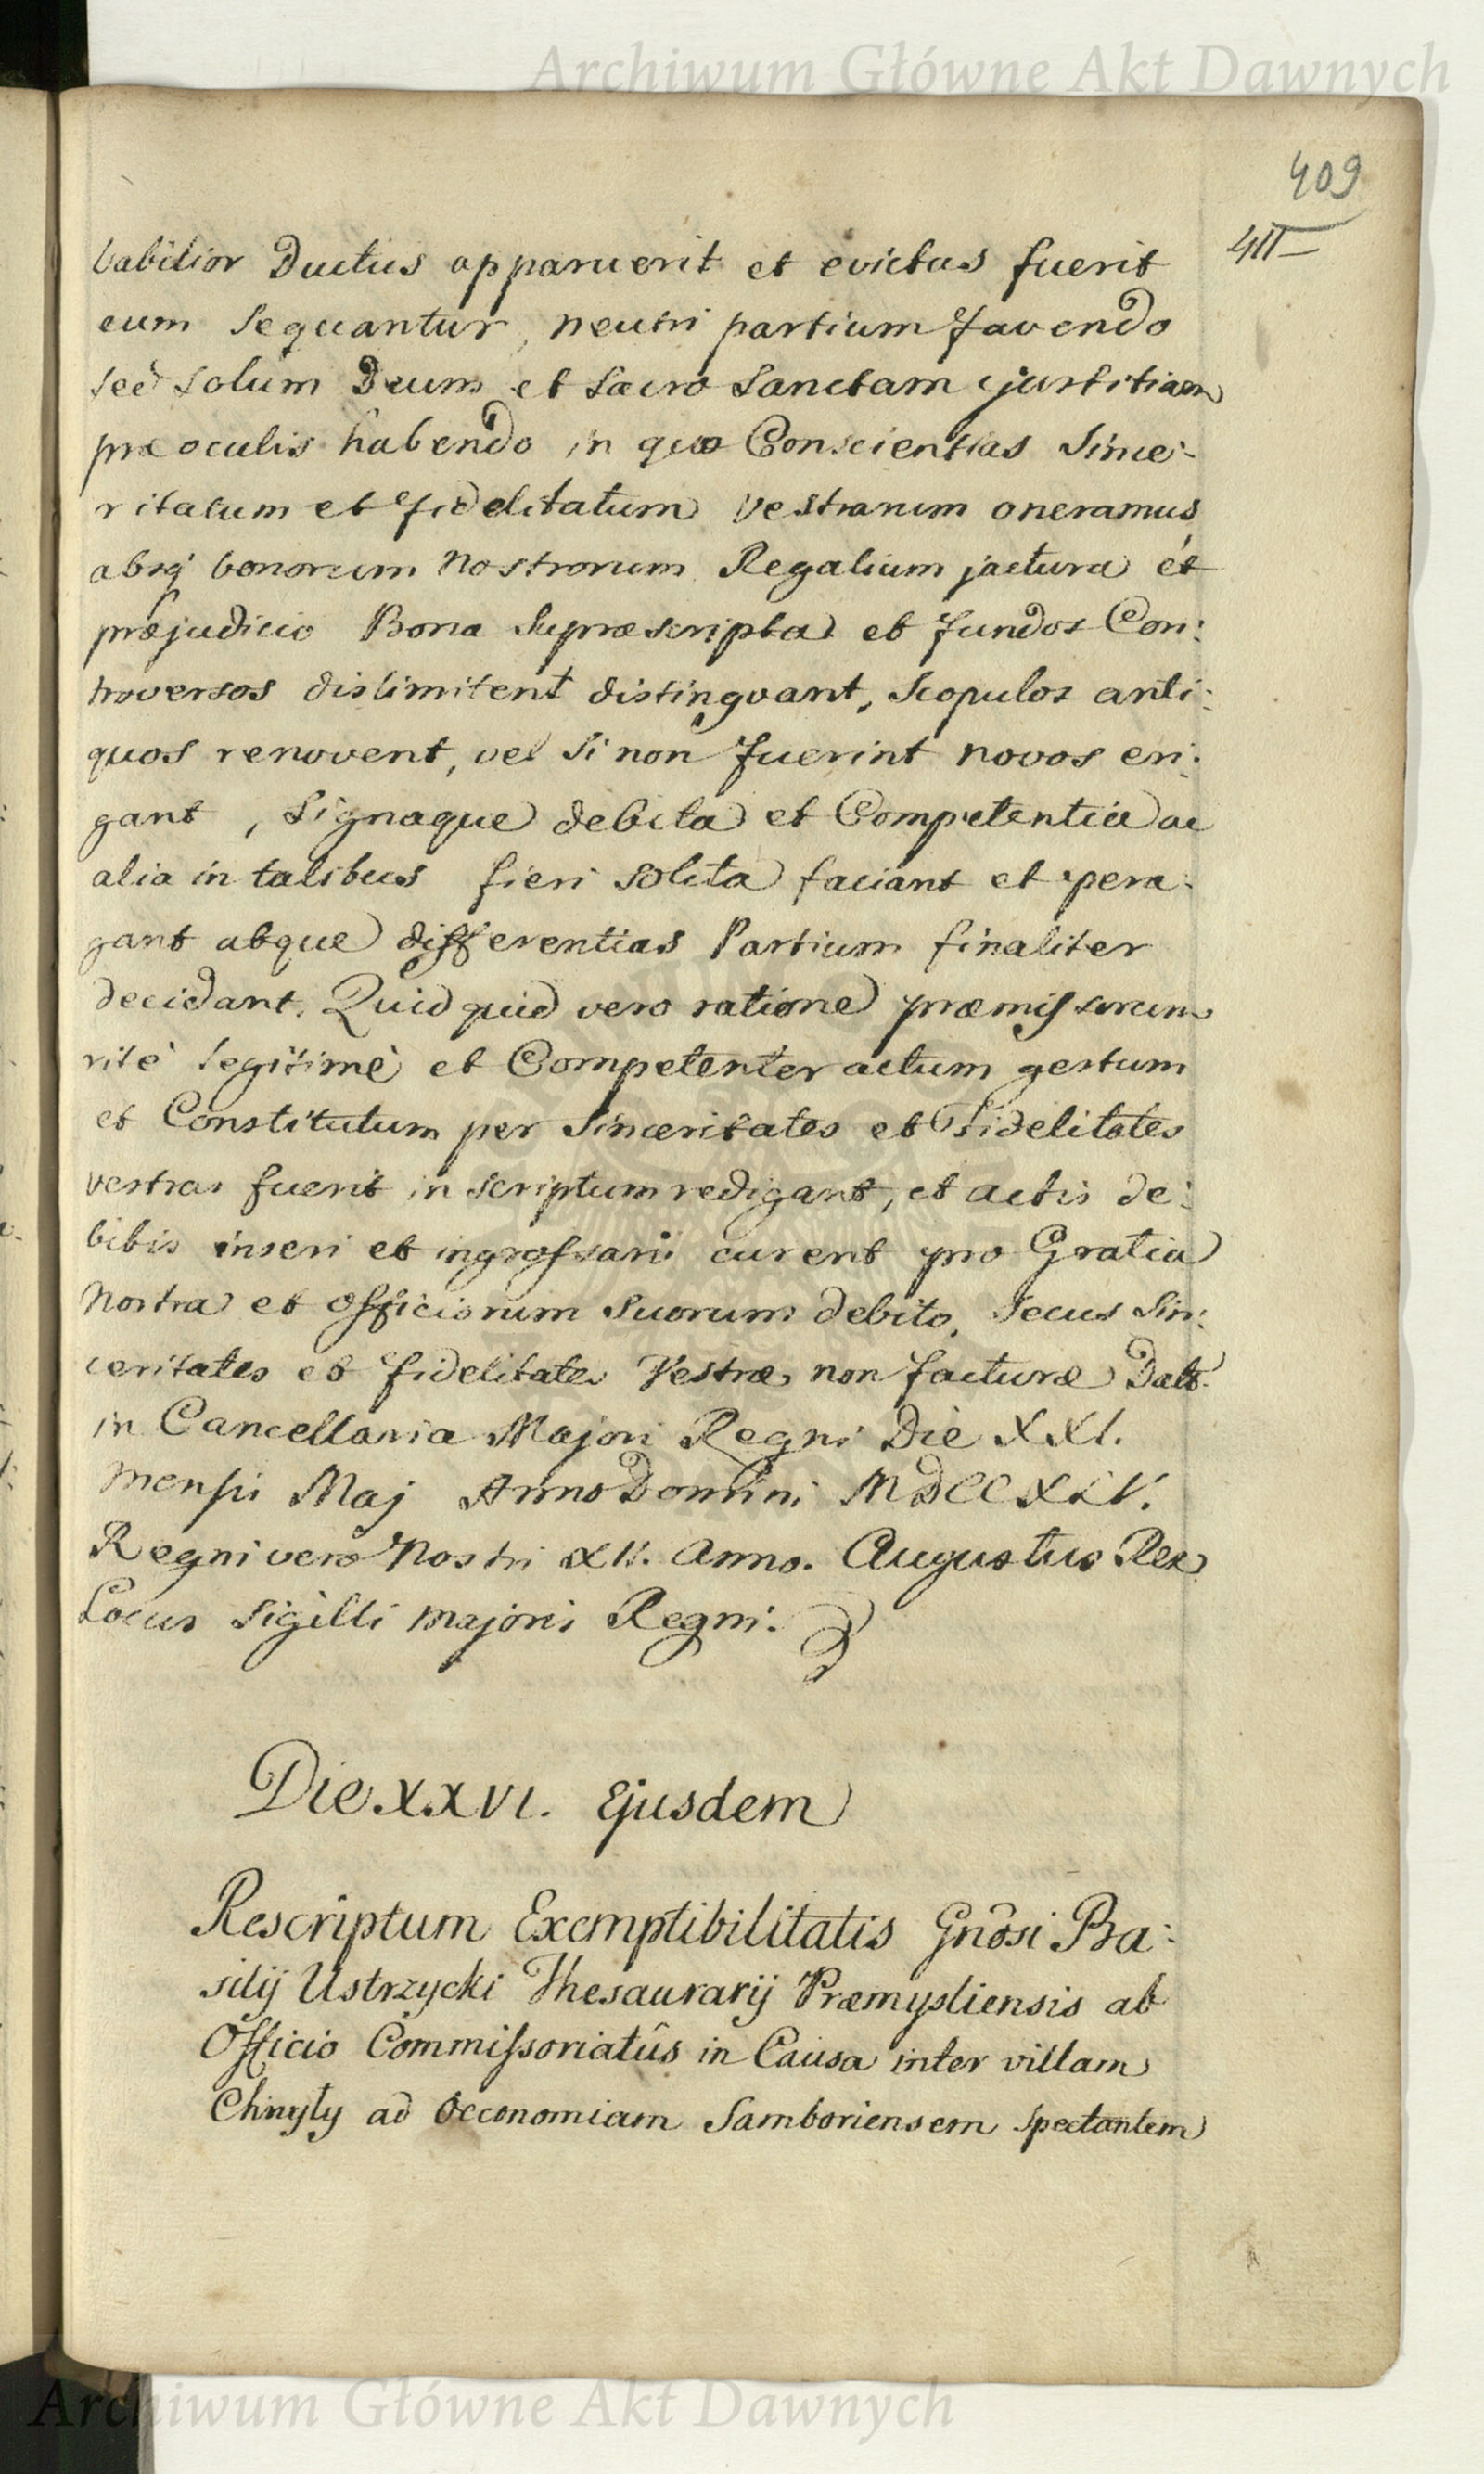 Archiwum Główne Akt Dawnych
409
411
babilior Ductus apparuerit et evictus fuerit
eum sequantur, neutri partium favendo
sed solum Deum et Sacro Sanctam justitiam
præ oculis habendo in quo Conscientias Since-
ritatum et fidelitatum Vestrarum oneramus
absq bonorum Nostrorum Regalium jactura et
præjudicio Bona Supræscripta et fundos Con:
troversos dislimitent distingvant, Scopulos anti:
quos renovent, vel si non fuerint novos eri:
gant, Signaque debita et Competentia ac
alia in talibus fieri solita faciant et pera:
gant atque differentias Partium finaliter
decidant. Quid quid vero ratione præmissorum
ritè legitimè et Competenter actum gestum
et Constitutum per Sinceritates et Fidelitates
vestras fuerit in scriptum redigant, et actis de:
bitis inseri et ingrossari curent pro Gratia
Nostra et officiorum suorum debito, Secus Sin:
ceritates et fidelitates Vestræ non facturæ Datt.
in Cancellaria Majori Regni Die XXI.
Mensis Maj Anno Domini MDCCXLV.
Regni vero Nostri XII. Anno. Augustus Rex
Locus Sigilli majoris Regni.
Die XXVI. Ejusdem
Rescriptum Exemptibilitatis Gnosi Ba:
silij Ustrzycki Thesaurarij Præmysliensis ab
Officio Commissoriatûs in Causa inter villam
ad Oeconomiam Samboriensem Spectantem
Archiwum Główne Akt Dawnych